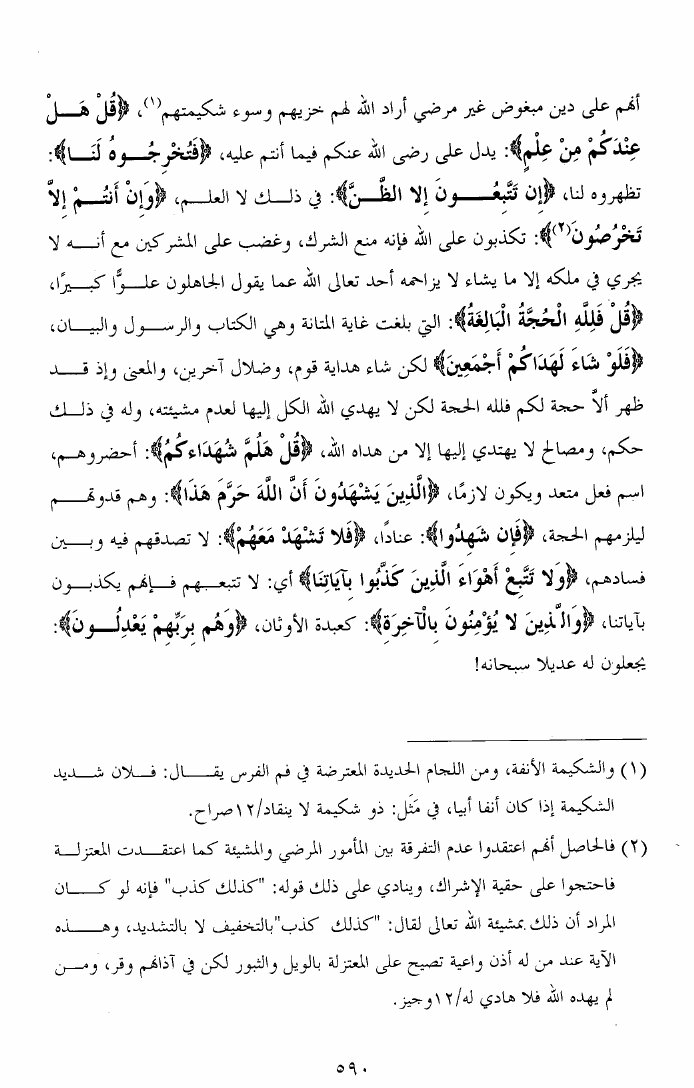 أنهم على دين مبغوض غير مرضي أراد الله لهم خزيهم وسوء شكيمتهم(١)، ﴿قُلْ هَلْ
عِنْدَكُمْ مِنْ عِلْمٍ﴾: يدل على رضى الله عنكم فيما أنتم عليه، ﴿فَتُخْرِجُوهُ لَنَا﴾:
تظهروه لنا، ﴿إِن تَتَّبِعُونَ إِلا الظَّنَّ﴾: في ذلك لا العلم، ﴿وَإِنْ أَنتُمْ إِلاَّ
تَخْرُصُونَ(٢)﴾: تكذبون على الله فإنه منع الشرك، وغضب على المشركين مع أنه لا
يجري في ملكه إلا ما يشاء لا يزاحمه أحد تعالى الله عما يقول الجاهلون علوًّا كبيرًا،
﴿قُلْ فَلِلَّهِ الْحُجَّةُ الْبَالِغَةُ﴾: التي بلغت غاية المتانة وهي الكتاب والرسول والبيان،
﴿فَلَوْ شَاءَ لَهَدَاكُمْ أَجْمَعِينَ﴾ لكن شاء هداية قوم، وضلال آخرين، والمعنى وإذ قد
ظهر ألاَّ حجة لكم فلله الحجة لكن لا يهدي الله الكل إليها لعدم مشيئته، وله في ذلك
حكم، ومصالح لا يهتدي إليها إلا من هداه الله، ﴿قُلْ هَلُمَّ شُهَدَاءكُمُ﴾: أحضروهم،
اسم فعل متعد ويكون لازمًا، ﴿الَّذِينَ يَشْهَدُونَ أَنَّ اللَّهَ حَرَّمَ هَذَا﴾: وهم قدوتهم
ليلزمهم الحجة، ﴿فَإِن شَهِدُوا﴾: عنادًا، ﴿فَلا تَشْهَدْ مَعَهُمْ﴾: لا تصدقهم فيه وبين
فسادهم، ﴿وَلا تَتَّبِعْ أَهْوَاءَ الَّذِينَ كَذَّبُوا بِآيَاتِنَا﴾ أي: لا تتبعهم فإنهم يكذبون
بآياتنا، ﴿وَالَّذِينَ لا يُؤْمِنُونَ بِالْآخِرَةِ﴾: كعبدة الأوثان، ﴿وَهُم بِرَبِّهِمْ يَعْدِلُونَ﴾:
يجعلون له عديلا سبحانه!
(١) والشكيمة الأنفة، ومن اللجام الحديدة المعترضة في فم الفرس يقال: فلان شديد
الشكيمة إذا كان أنفا أبيا، في مَثَل: ذو شكيمة لا ينقاد/١٢صراح.
(٢) فالحاصل أنهم اعتقدوا عدم التفرقة بين المأمور المرضي والمشيئة كما اعتقدت المعتزلة
فاحتجوا على حقية الإشراك، وينادي على ذلك قوله: "كذلك كذب" فإنه لو كان
المراد أن ذلك بمشيئة الله تعالى لقال: "كذلك كذب"بالتخفيف لا بالتشديد، وهذه
الآية عند من له أذن واعية تصيح على المعتزلة بالويل والثبور لكن في آذانهم وقر، ومن
لم يهده الله فلا هادي له/١٢وجيز.
٥٩٠